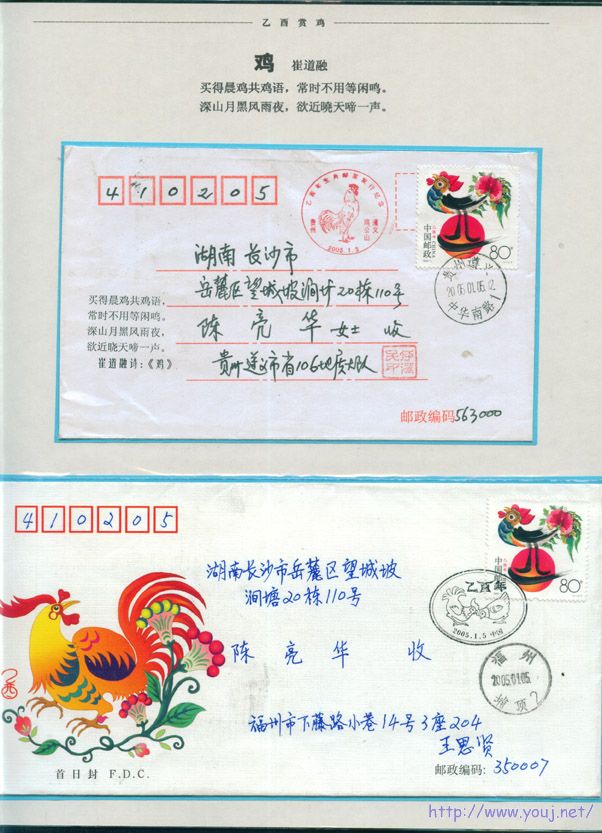 乙酉赏鸡
鸡 崔道融
买得晨鸡共鸡语，常时不用等闲鸣。
深山月黑风雨夜，欲近晓天啼一声。
410205
2005.1.5
中国邮政
80分
湖南长沙市
岳麓区望城坡涧圹20栋110号
陈亮华女士 收
贵州遵义市省106地质大队
2005.01.05.
中华南路1
买得晨鸡共鸡语，
常时不用等闲鸣。
深山月黑风雨夜，
欲近晓天啼一声。
崔道融诗：《鸡》
邮政编码563000
410205
80分
湖南长沙市岳麓区望城坡
涧塘20栋110号
乙酉年
2005.1.5 中国
陈亮华 收
福州
2005.01.05.
福州市下藤路小巷14号3座204
王思贤
首日封 F.D.C.
邮政编码：350007
http://www.youj.net/